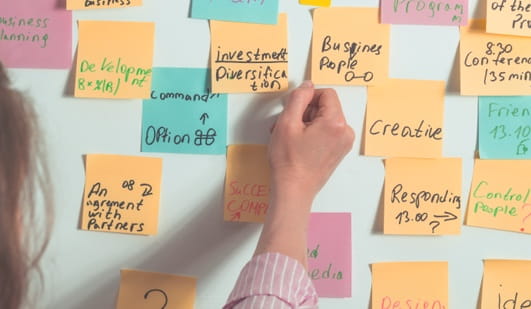 Business
Business
Planning
Program
of the
Pro
Development
investment
Diversification
Business
People
8.30
Conferenc
135 min
Option
Creative
Frien
13.10
An
agreement
with
Partners
SUCCE
COMP
Responding
13.00 →
?
Control
People
?
media
?
Design
ide